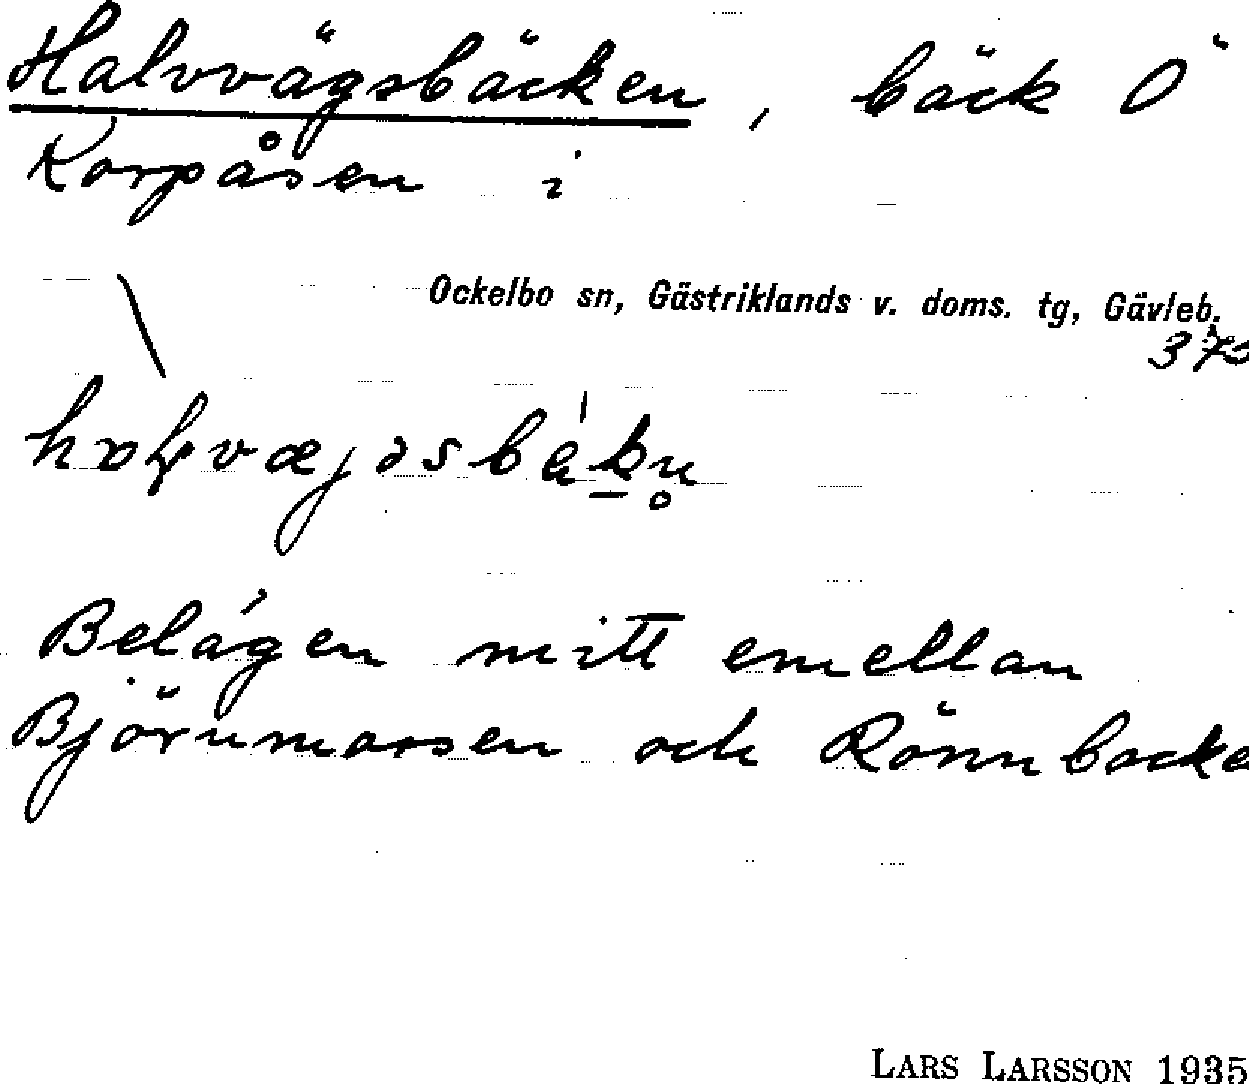 Halvvägsbäcken, bäck Ö
Korpåsen i
Ockelbo sn, Gästriklands v. doms. tg, Gävleb.
Belägen mitt emellan
Björnmossen och Rönnbacke
LARS LARSSON 1935